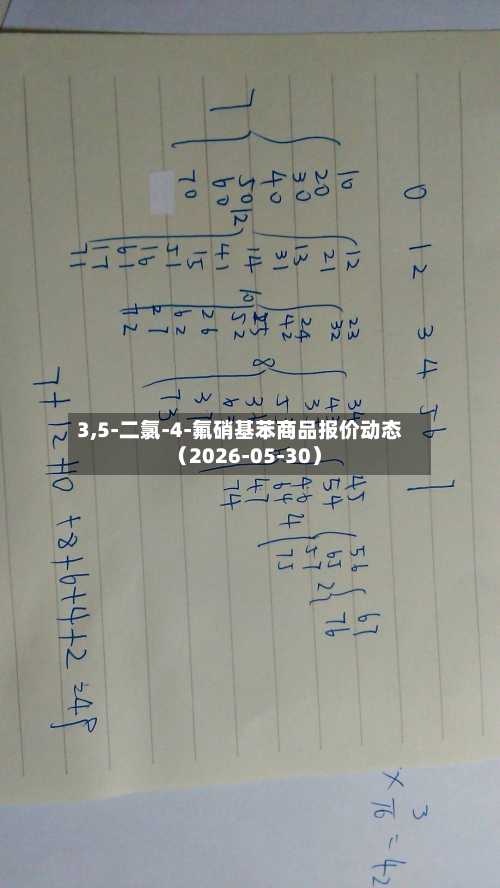 0 1 2 3 4 5 6 7
7
10
20
30
40
50
60
70
12
12
21
13
31
14
41
15
51
16
61
17
71
10
23
32
24
42
25
52
26
62
27
72
8
34
73
45
54
46
64
47
74
4
56
65
57
75
2
67
76
7+12+10+8+6+4+2=49
3,5-二氯-4-氟硝基苯商品报价动态
（2026-05-30）